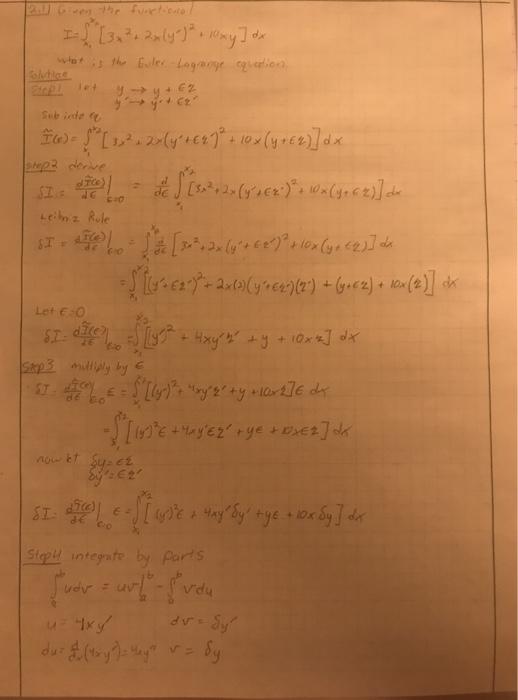 2.1) Given the functional
I = ∫_{x₁}^{x₂} [3x² + 2x(y')² + 10xy] dx
what is the Euler-Lagrange equation
Solution
Step1 let y → y + εη
y' → y' + εη'
Sub into eq
Ĩ(ε) = ∫_{x₁}^{x₂} [3x² + 2x(y'+εη')² + 10x(y+εη)] dx
Step2 derive
δI = dĨ(ε)/dε |_{ε=0} = d/dε ∫_{x₁}^{x₂} [3x² + 2x(y'+εη')² + 10x(y+εη)] dx
Leibnz Rule
δI = dĨ(ε)/dε |_{ε=0} = ∫_{x₁}^{x₂} d/dε [3x² + 2x(y'+εη')² + 10x(y+εη)] dx
= ∫_{x₁}^{x₂} [(y'+εη')² + 2x(2)(y'+εη')(η') + (y+εη) + 10x(η)] dx
Let ε=0
δI = dĨ(ε)/dε |_{ε=0} = ∫_{x₁}^{x₂} [(y')² + 4xy'η' + y + 10xη] dx
Step3 multiply by ε
δI = dĨ(ε)/dε |_{ε=0} ε = ∫_{x₁}^{x₂} [(y')² + 4xy'η' + y + 10xη] ε dx
= ∫_{x₁}^{x₂} [(y')²ε + 4xy'εη' + yε + 10xεη] dx
now let δy = εη
δy' = εη'
δI = dĨ(ε)/dε |_{ε=0} ε = ∫_{x₁}^{x₂} [(y')²ε + 4xy'δy' + yε + 10xδy] dx
Step4 integrate by parts
∫_a^b udv = uv|_a^b - ∫_a^b vdu
u = 4xy' dv = δy'
du = d/dx(4xy') = 4xy'' v = δy